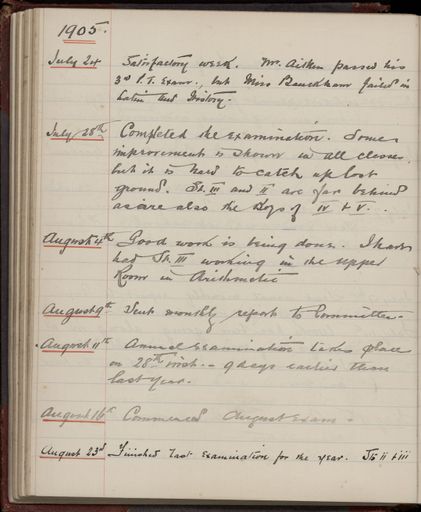 1905.
July 24 Satisfactory week. Mr. Aitken passed his
3rd P.T. Exam., but Miss Bauckham failed in
Latin and History.
July 28th Completed the examination. Some
improvement is shown in all classes,
but it is hard to catch up lost
ground. St. III and II are far behind
as are also the boys of IV & V.
August 4th Good work is being done. I have
had St. III working in the upper
Room in Arithmetic
August 9th Sent monthly report to Committee.
August 11th Annual examination takes place
on 28th inst. - 9 days earlier than
last year.
August 16th Commenced August Exam.
August 23rd Finished last examination for the year. Sts ii & iii